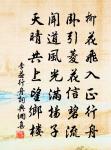 柳花飛入正行舟
卧引菱花信碧流
聞道風光滿揚子
天晴共上望鄉樓
李益行舟詞典網集